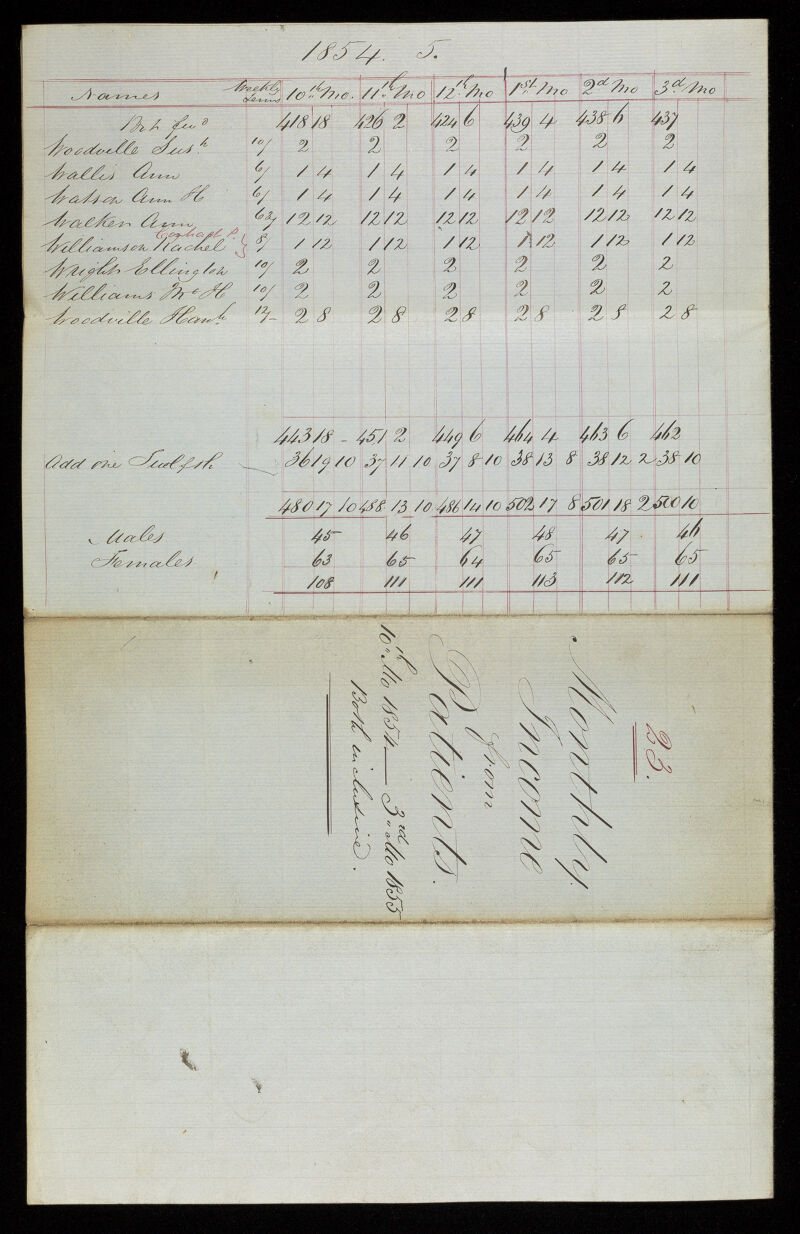 1854. 5.
Names Weekly Terms 10th Mo. 11th Mo 12th Mo 1st Mo 2d Mo 3d Mo
Bot fwd 418 18 426 2 424 6 439 4 438 6 437
Woodville Sush 10/ 2 2 2 2 2 2
Wallis Ann 6/ 1 4 1 4 1 4 1 4 1 4 1 4
Watson Ann H 6/ 1 4 1 4 1 4 1 4 1 4 1 4
Walker Ann 63/ 12 12 12 12 12 12 12 12 12 12 12 12
Williamson Rachel 8/ 1 12 1 12 1 12 1 12 1 12 1 12
Wright Ellington 10/ 2 2 2 2 2 2
Williams Wm H 10/ 2 2 2 2 2 2
Woodville Hanh 12/- 2 8 2 8 2 8 2 8 2 8 2 8
443 18 - 451 2 449 6 464 4 463 6 462
Add one Twelfth 36 19 10 37 11 10 37 8 10 38 13 8 38 12 2 38 10
480 17 10 488 13 10 486 14 10 502 17 8 501 18 2 500 10
Males 45 46 47 48 47 46
Females 63 65 64 65 65 65
108 111 111 113 112 111
23.
Monthly
Income
from
Patients.
10th Mo 1854 — 3rd Mo 1855
Both inclusive.